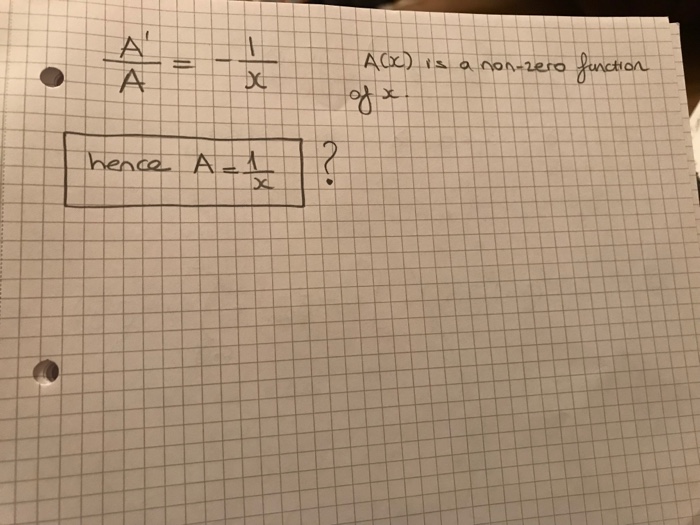 A'/A = - 1/x
A(x) is a non-zero function
of x.
hence A = 1/x ?